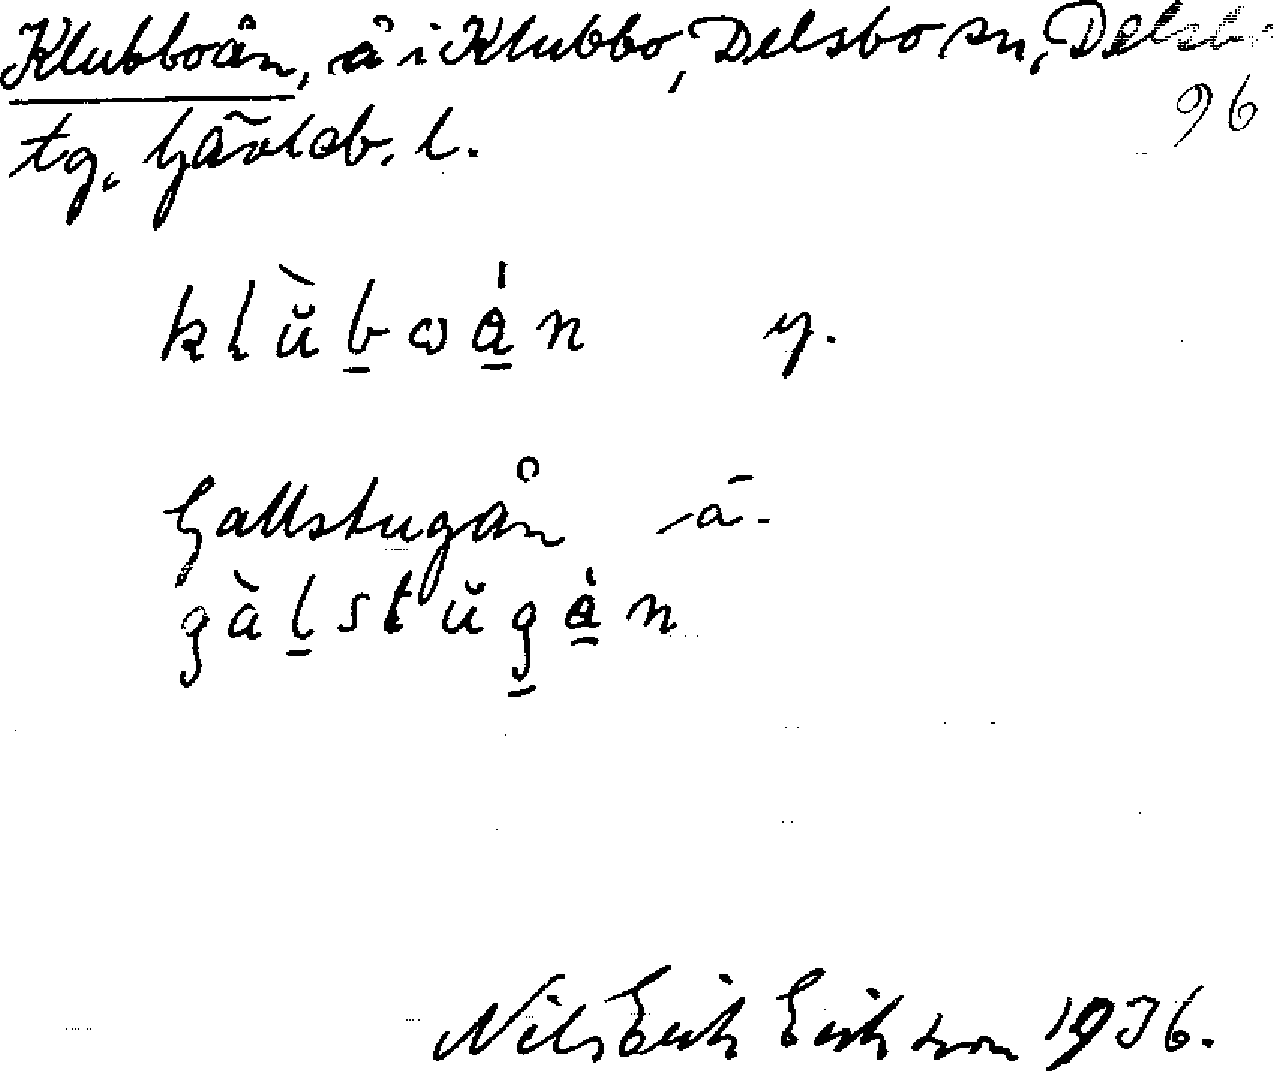 Klubboån, å i Klubbo, Delsbo sn, Delsbo
96
tg, Gävleb. l.
klŭ̀bωa̱̍n y.
Gallstugån -ā-
gàḻstŭg̱a̱̍n
Nils Erik Erikson 1936.